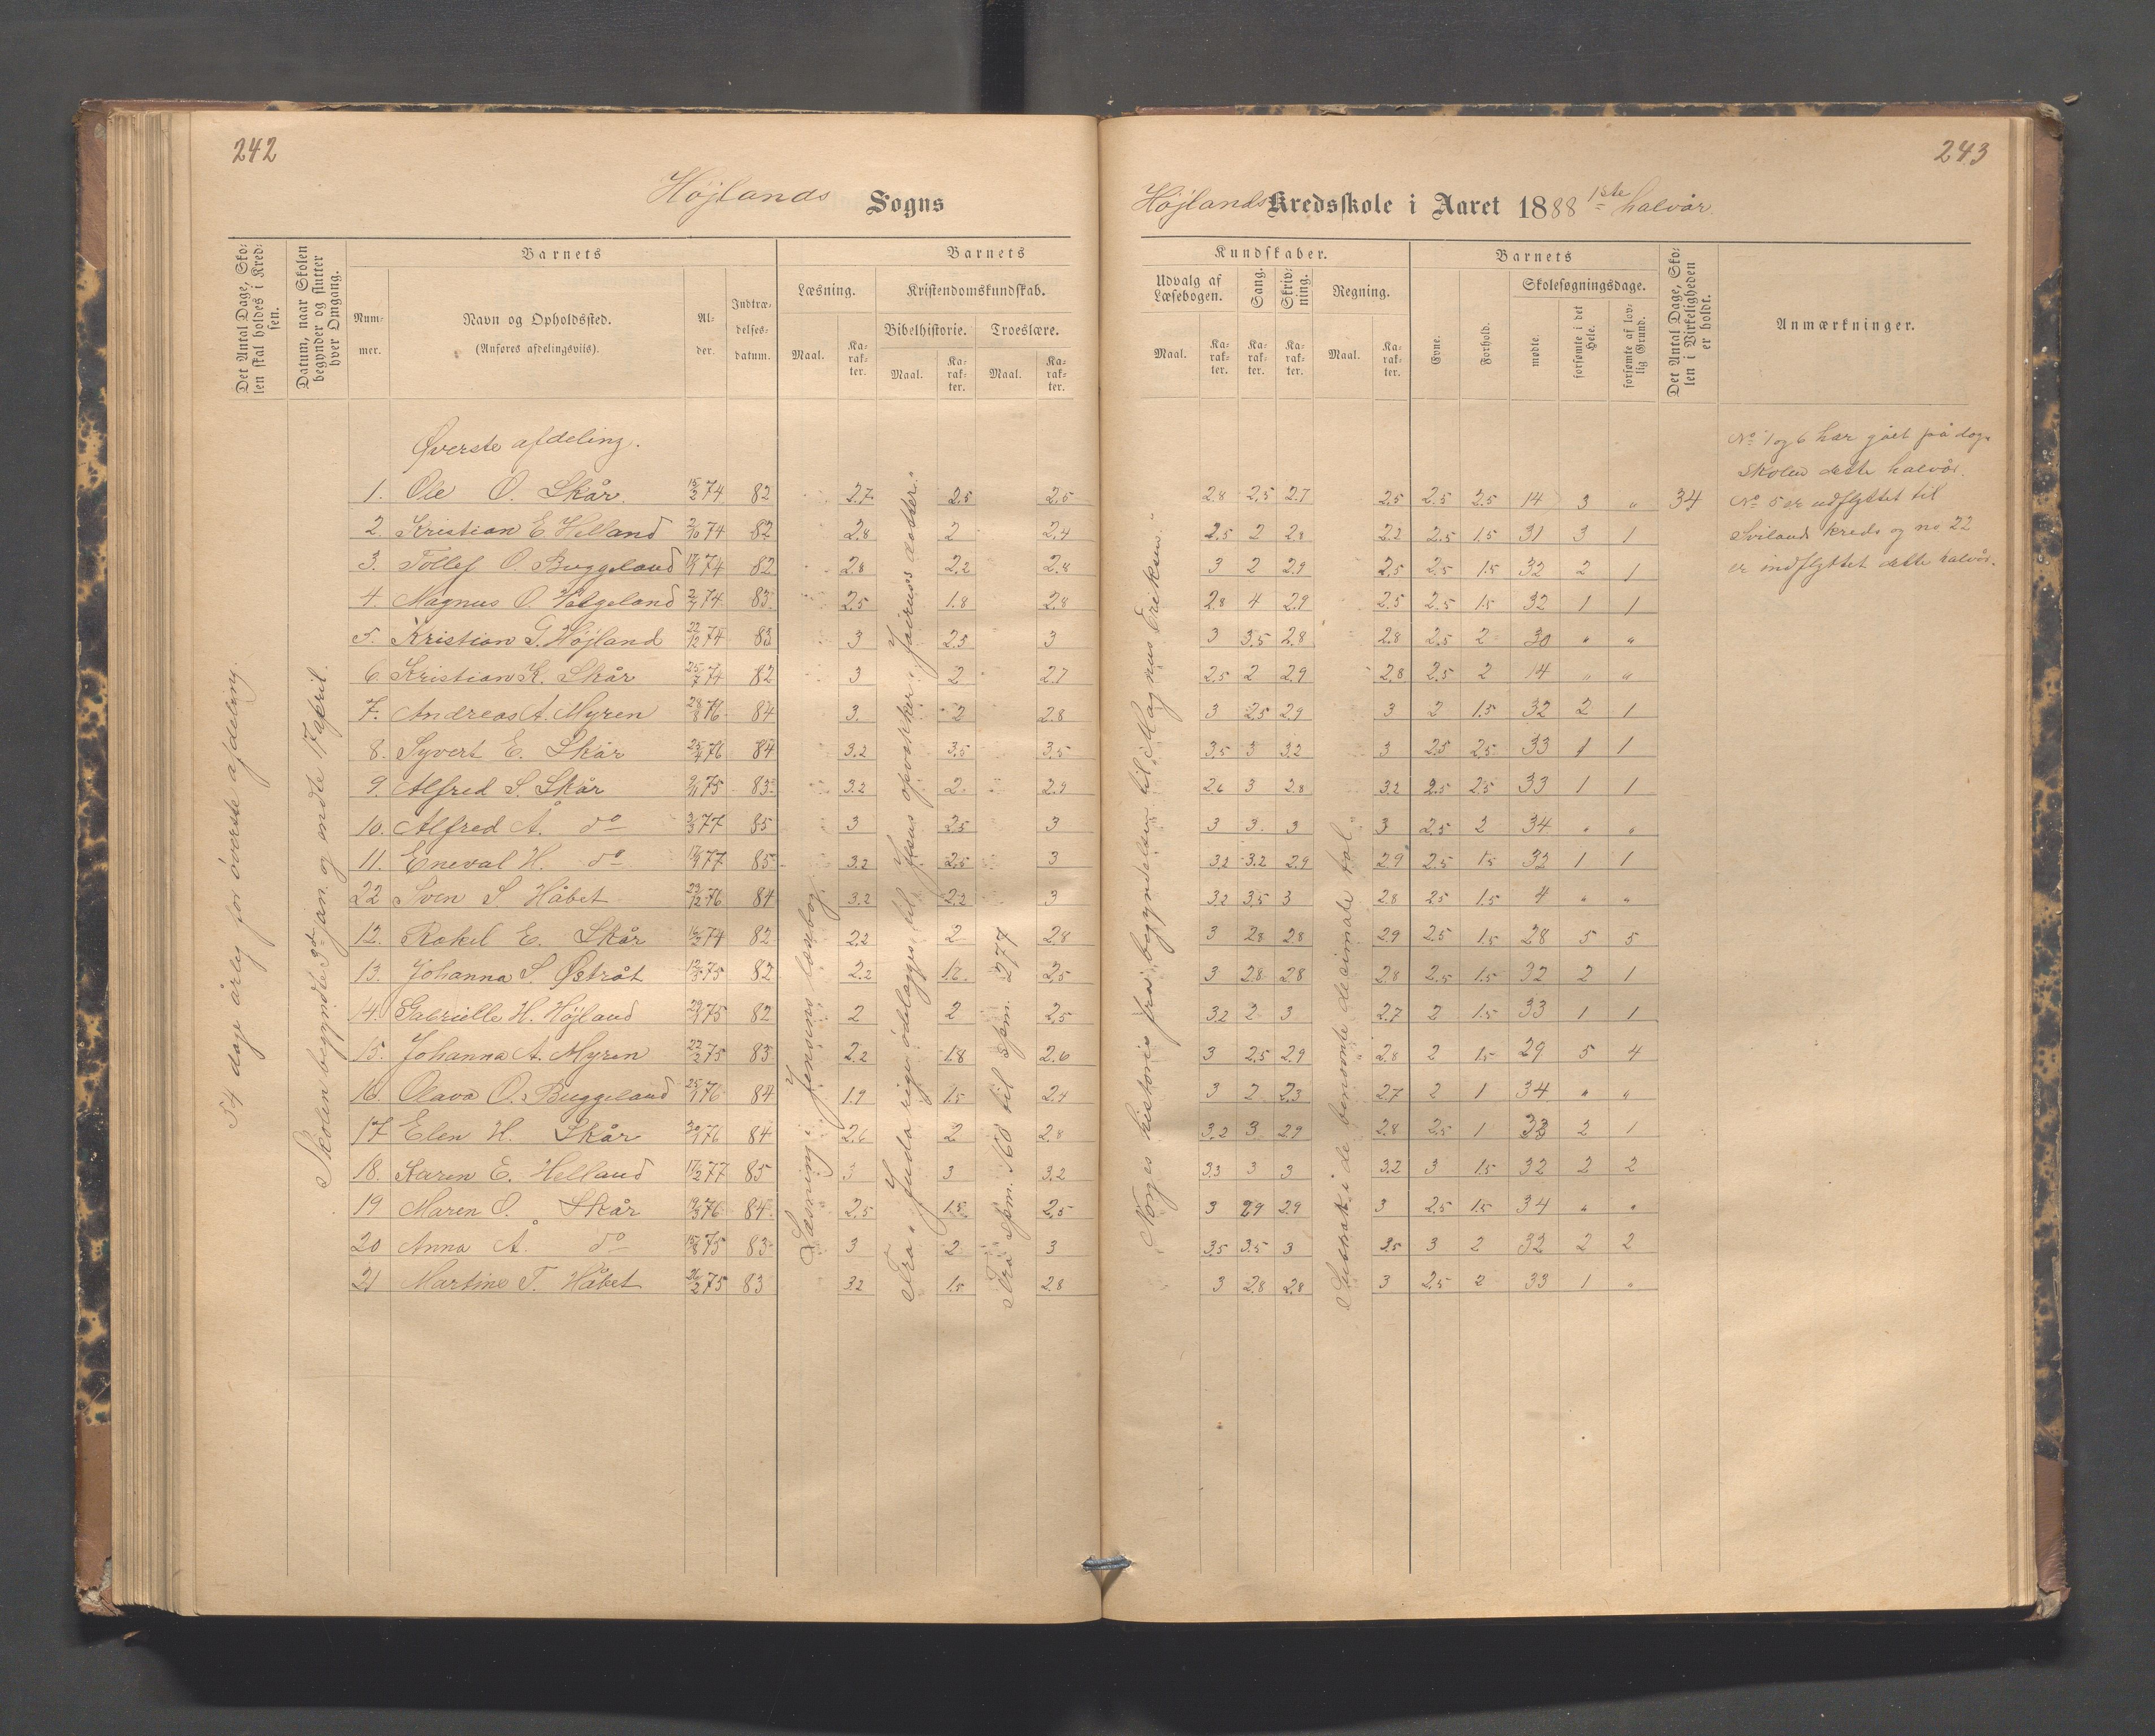 242
Højlands Sogns
Det Antal Dage, Skolen skal holdes i Kredsen.
Datum, naar Skolen begynder og slutter hver Omgang.
Barnets
Nummer.
Navn og Opholdssted.
(Anføres afdelingsviis).
Alder.
Indtrædelsesdatum.
Barnets
Læsning.
Kristendomskundskab.
Bibelhistorie.
Troeslære.
Maal.
Karakter.
Maal.
Karakter.
Maal.
Karakter.
54 dage årlig for øverste afdeling.
Skolen begyndte 3die jan. og endte 17 april.
Læsning i Jensens læsebog
Fra „Juda rige ødelægges“ til „Jesus opvækker Jairus's datter.“
Fra spm. 160 til spm. 277
Øverste afdeling.
1. Ole O. Skår. 15/2 74 82 2.7 2.5 2.5
2. Kristian E. Helland 2/10 74 82 2.8 2 2.4
3. Tollef O. Buggeland 74 82 2.8 2.2 2.8
4. Magnus O. 74 83 2.5 1.8 2.8
5. Kristian T. Højland 22/12 74 83 3 2.5 3
6. Kristian K. Skår 25/7 74 82 3 2 2.7
7. Andreas A. Myren 28/8 76 84 3. 2 2.8
8. Syvert E. Skår 25/4 76 84 3.2 3.5 3.5
9. Alfred S. Skår 75 83 3.2 2. 2.9
10. Alfred Å. do 77 85 3 2.5 3
11. Eneval H. do 77 85 3.2 2.5 3
22 Sven S Håbet 23/12 76 84 3.2 2.2 3
12. Rakel E. Skår 74 82 2.2 2 2.8
13. Johanna S. Østråt 75 82 2.2 2.5
14. Gabrielle H. Højland 75 82 2 2 2.5
15. Johanna A. Myren 22/2 75 83 2.2 1.8 2.6
16. Olava O. Buggeland 76 84 1.9 1.5 2.4
17 Elen H. Skår 76 84 2.6 2 2.8
18. Karen E. Helland 77 85 3 3 3.2
19 Maren O. Skår 76 84 2.5 1.5 2.5
20 Anna Å. do 75 83 3 2 3
21 Martine T. Håbet 75 83 3.2 1.5 2.8
243
Højlands Kredsskole i Aaret 1888 1ste halvår.
Kundskaber.
Udvalg af Læsebogen.
Sang.
Skrivning.
Regning.
Maal.
Karakter.
Karakter.
Karakter.
Maal.
Karakter.
Barnets
Evne.
Forhold.
Skolesøgningsdage.
mødte.
forsømte i det Hele.
forsømte af lovlig Grund.
Det Antal Dage, Skolen i Virkeligheden er holdt.
Anmærkninger.
Norges historie fra begyndelsen til „Magnus Eriksen.“
i de benævnte decimale tal
2.8 2.5 2.7 2.5 2.5 2.5 14 3 „ 34
2.5 2 2.8 2.2 2.5 1.5 31 3 1
3 2 2.9 2.5 2.5 1.5 32 2 1
2.8 4 2.9 2.5 2.5 1.5 32 1 1
3 3.5 2.8 2.8 2.5 2 30 „ „
2.5 2 2.9 2.8 2.5 2 14 „ „
3 2.5 2.9 3 2 1.5 32 2 1
3.5 3 3.2 3 2.5 2.5 33 1 1
2.6 3 2.8 3.2 2.5 2.5 33 1 1
3 3. 3 3 2.5 2 34 „ „
3.2 3.2 2.9 2.9 2.5 1.5 32 1 1
3.2 3.5 3 2.8 2.5 1.5 4 „ „
3 2.8 2.8 2.9 2.5 1.5 28 5 5
3 2.8 2.8 2.8 2.5 1.5 32 2 1
3.2 2 3 2.7 2 1.5 33 1 1
3 2.5 2.9 2.8 2 1.5 29 5 4
3 2 2.3 2.7 2 1 34 „ „
3.2 3 2.9 2.8 2.5 1 33 2 1
3.3 3 3 3.2 3 1.5 32 2 2
3 2.9 2.9 3 2.5 1.5 34 „ „
3.5 3.5 3 3.5 3 2 32 2 2
3 2.8 2.8 3 2.5 2 33 1 „
No 1 og 6 har gået på dag-
skolen dette halvår.
No 5 er udflyttet til
Svilands kreds og no 22
er indflyttet dette halvår.